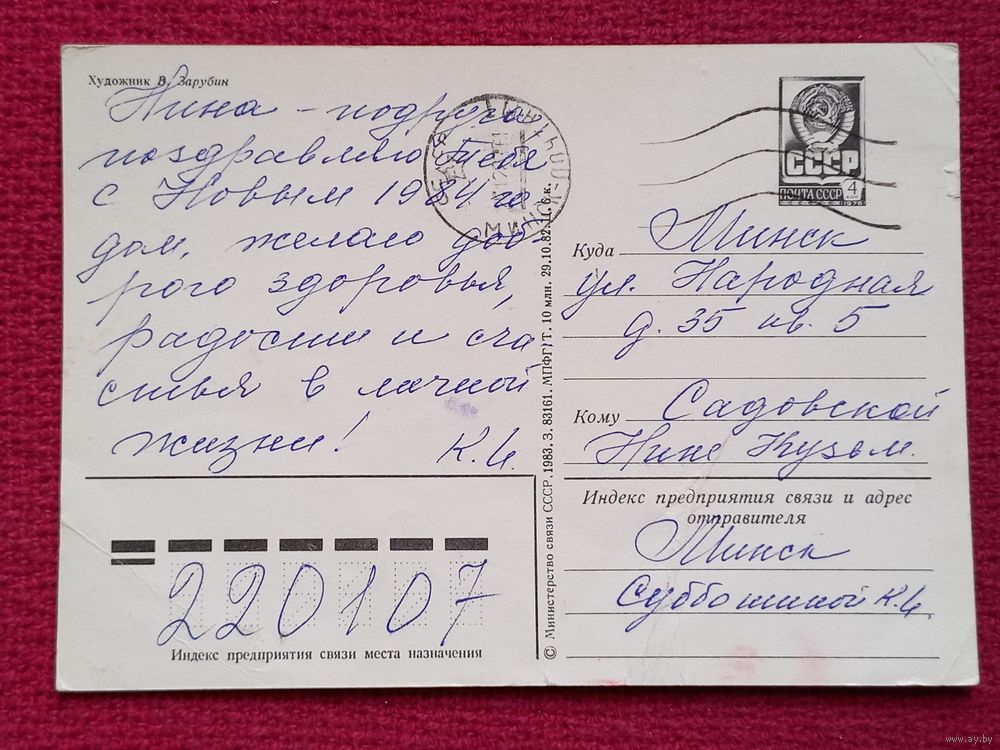 Художник В. Зарубин
Нина - подруга
поздравляю Тебя
с Новым 1984 го
дом, желаю доб-
рого здоровья,
радости и сча
стья в личной
жизни!
К.И.
СССР
ПОЧТА СССР 4
1976
Куда Минск
ул. Народная
д. 35 кв. 5
Кому Садовской
Нине Кузьм.
Индекс предприятия связи и адрес
отправителя
Минск
Субботиной К.И.
220107
Индекс предприятия связи места назначения
© Министерство связи СССР. 1983. З. 83161. МПФГ. Т. 10 млн. 29.10.82. Ц. 6 к.
МИНСК
www.ay.by